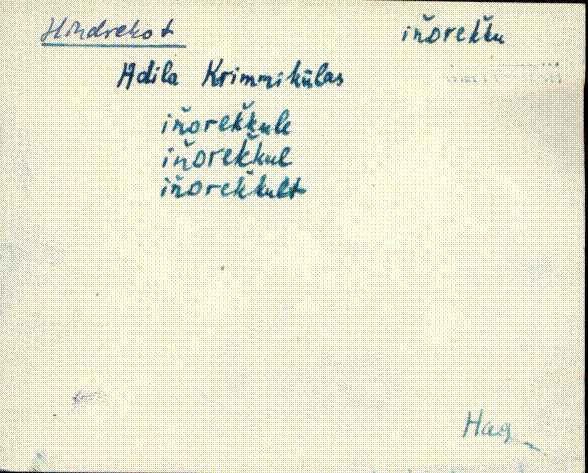 Hindreko t iňorekku
Adila Krimmikülas
iňorekkule
iňorekkul
iňorekkult
Hag